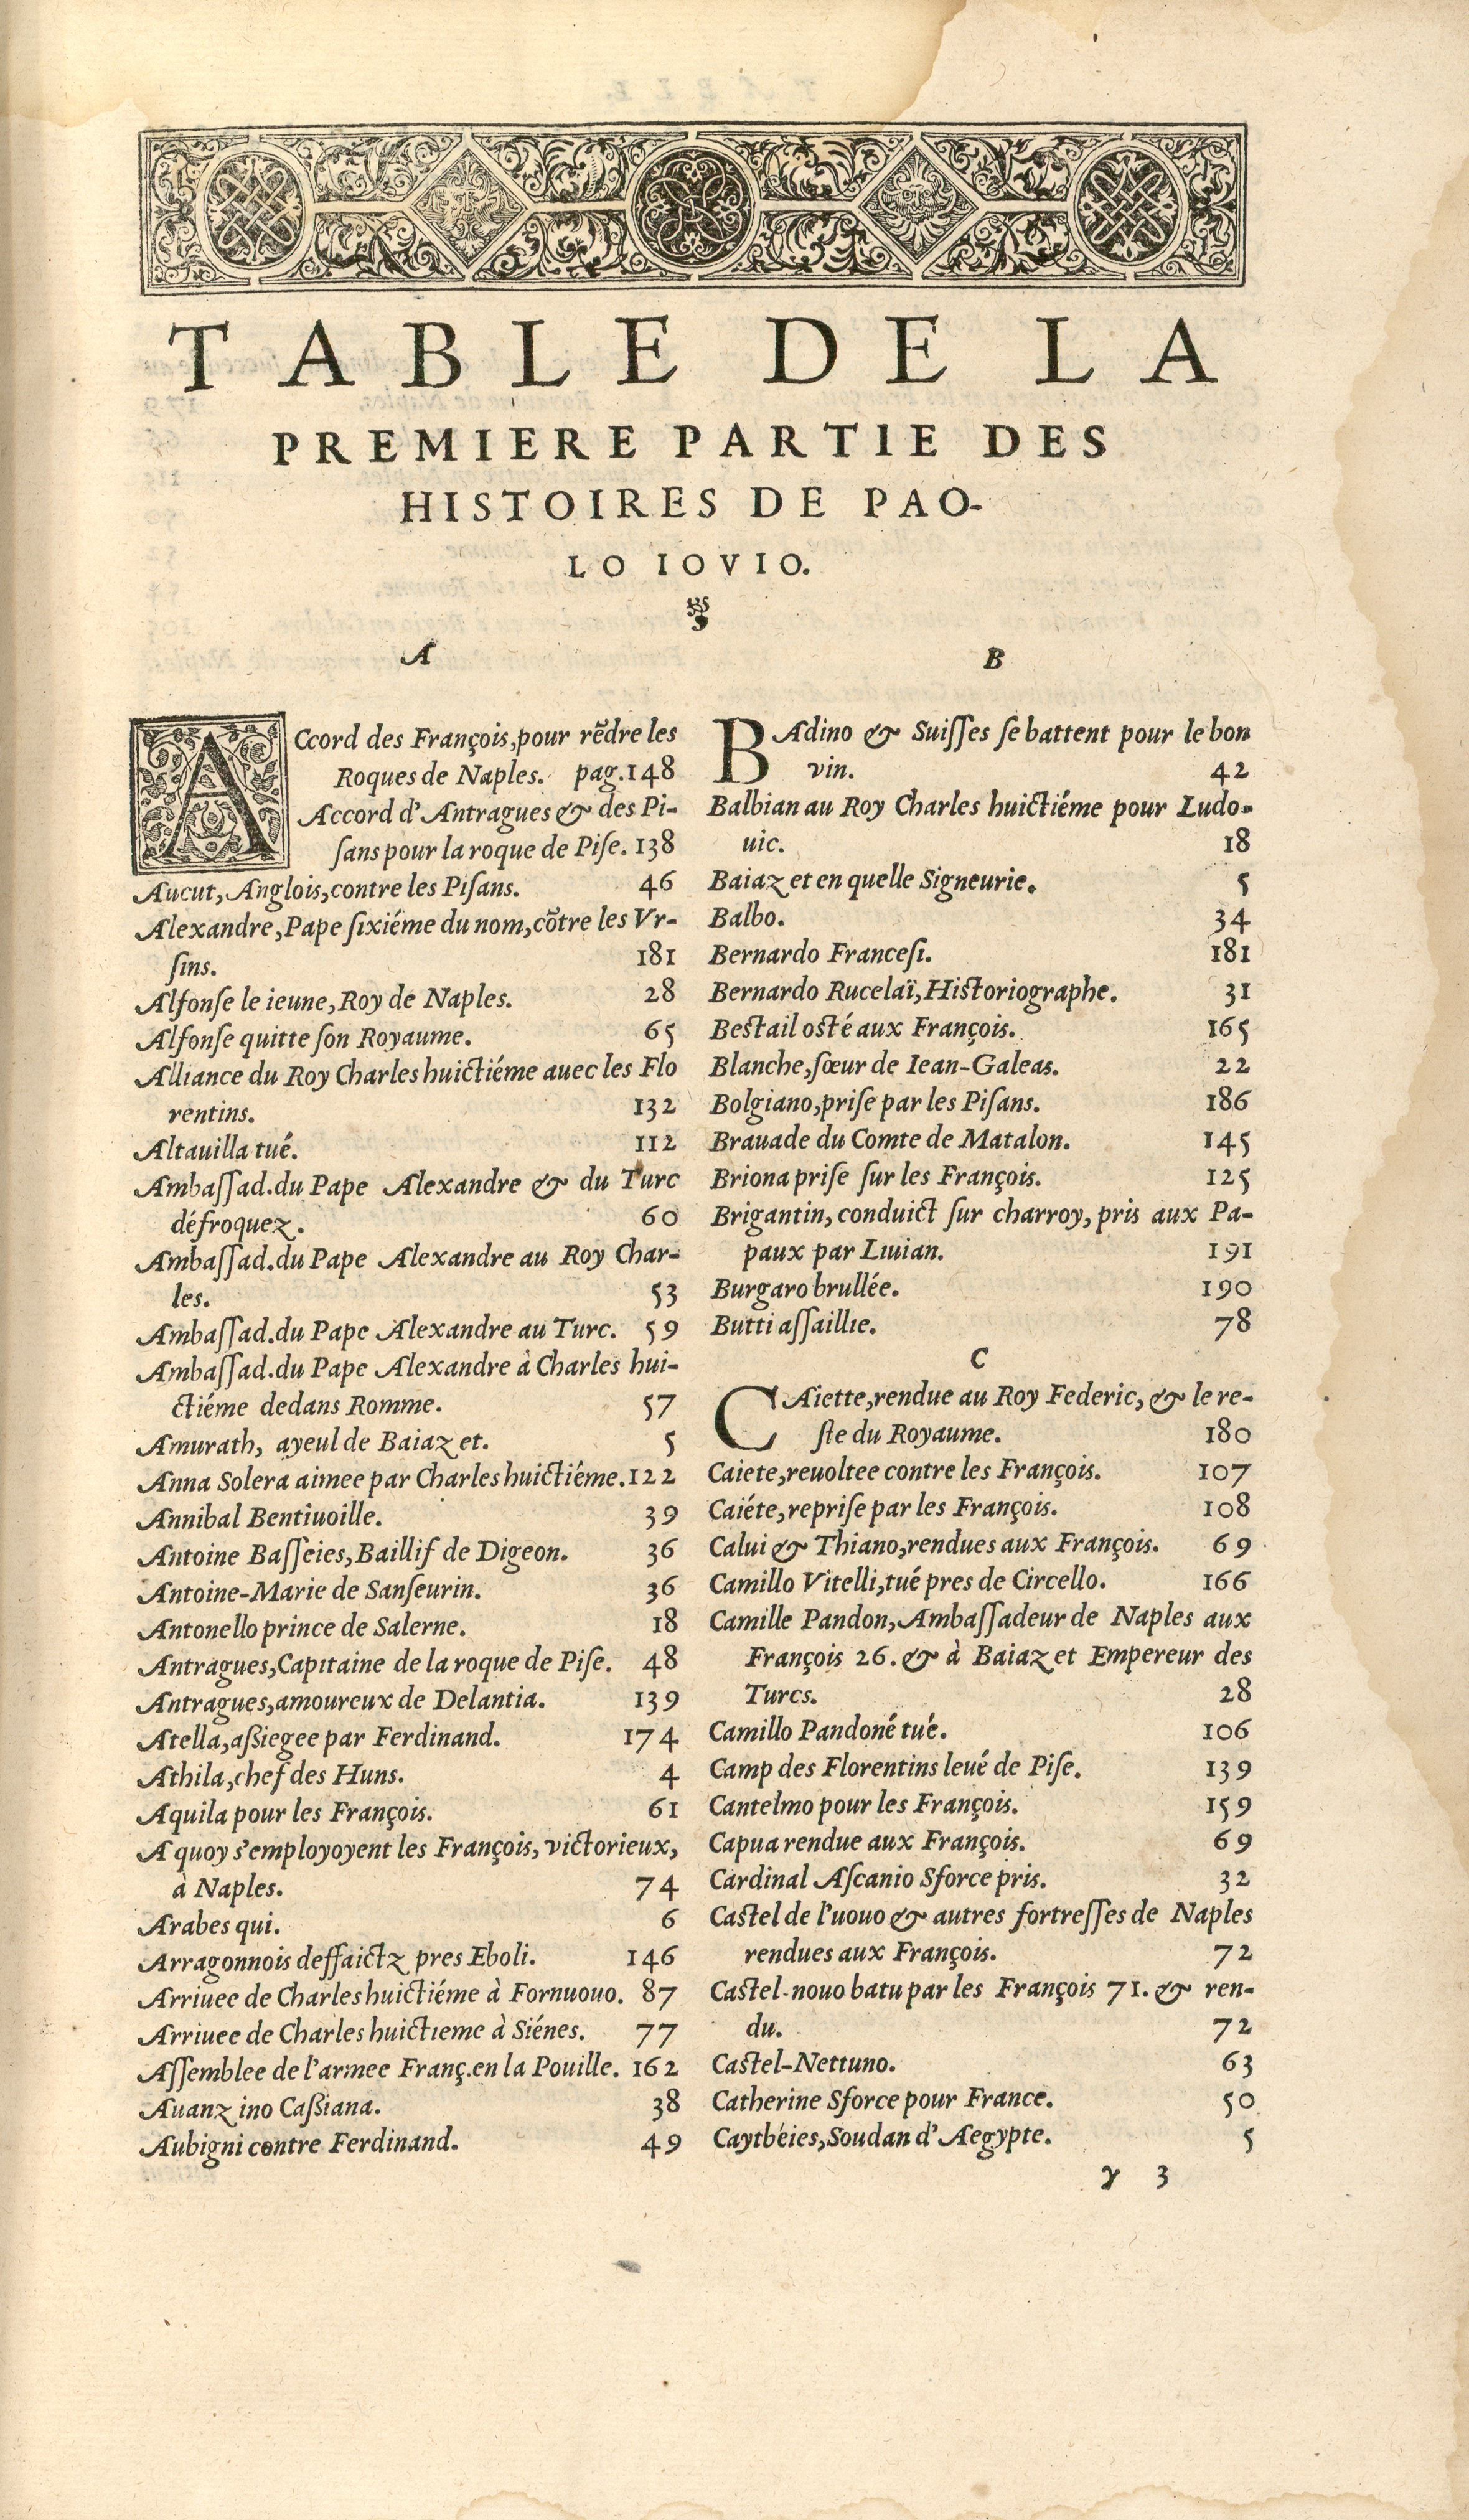 TABLE DE LA
PREMIERE PARTIE DES
HISTOIRES DE PAO-
LO IOVIO.
A
ACcord des François, pour rẽdre les
Roques de Naples. pag.148
Accord d'Antragues & des Pi-
ſans pour la roque de Piſe. 138
Aucut, Anglois, contre les Piſans. 46
Alexandre, Pape ſixiéme du nom, cõtre les Vr-
ſins. 181
Alfonſe le ieune, Roy de Naples. 28
Alfonſe quitte ſon Royaume. 65
Alliance du Roy Charles huictiéme auec les Flo
rentins. 132
Altauilla tué. 112
Ambaſſad. du Pape Alexandre & du Turc
défroquez. 60
Ambaſſad. du Pape Alexandre au Roy Char-
les. 53
Ambaſſad. du Pape Alexandre au Turc. 59
Ambaſſad. du Pape Alexandre à Charles hui-
ctiéme dedans Romme. 57
Amurath, ayeul de Baiazet. 5
Anna Solera aimee par Charles huictiéme. 122
Annibal Bentiuoille. 39
Antoine Baſſeies, Baillif de Digeon. 36
Antoine-Marie de Sanſeurin. 36
Antonello prince de Salerne. 18
Antragues, Capitaine de la roque de Piſe. 48
Antragues, amoureux de Delantia. 139
Atella, aßiegee par Ferdinand. 174
Athila, chef des Huns. 4
Aquila pour les François. 61
A quoy s'employoyent les François, victorieux,
à Naples. 74
Arabes qui. 6
Arragonnois deffaictz pres Eboli. 146
Arriuee de Charles huictiéme à Fornuouo. 87
Arriuee de Charles huictieme à Siénes. 77
Aſſemblee de l'armee Franç. en la Pouille. 162
Auanzino Caßiana. 38
Aubigni contre Ferdinand. 49
B
BAdino & Suiſſes ſe battent pour le bon
vin. 42
Balbian au Roy Charles huictiéme pour Ludo-
uic. 18
Baiazet en quelle Signeurie. 5
Balbo. 34
Bernardo Franceſi. 181
Bernardo Rucelaï, Hiſtoriographe. 31
Beſtail oſté aux François. 165
Blanche, ſœur de Iean-Galeas. 22
Bolgiano, priſe par les Piſans. 186
Brauade du Comte de Matalon. 145
Briona priſe ſur les François. 125
Brigantin, conduict ſur charroy, pris aux Pa-
paux par Liuian. 191
Burgaro brullée. 190
Butti aſſaillie. 78
C
CAiette, rendue au Roy Federic, & le re-
ſte du Royaume. 180
Caiete, reuoltee contre les François. 107
Caiéte, repriſe par les François. 108
Calui & Thiano, rendues aux François. 69
Camillo Vitelli, tué pres de Circello. 166
Camille Pandon, Ambaſſadeur de Naples aux
François 26. & à Baiazet Empereur des
Turcs. 28
Camillo Pandoné tué. 106
Camp des Florentins leué de Piſe. 139
Cantelmo pour les François. 159
Capua rendue aux François. 69
Cardinal Aſcanio Sforce pris. 32
Caſtel de l'uouo & autres fortreſſes de Naples
rendues aux François. 72
Caſtel-nouo batu par les François 71. & ren-
du. 72
Caſtel-Nettuno. 63
Catherine Sforce pour France. 50
Caytbéies, Soudan d'Aegypte. 5
γ 3